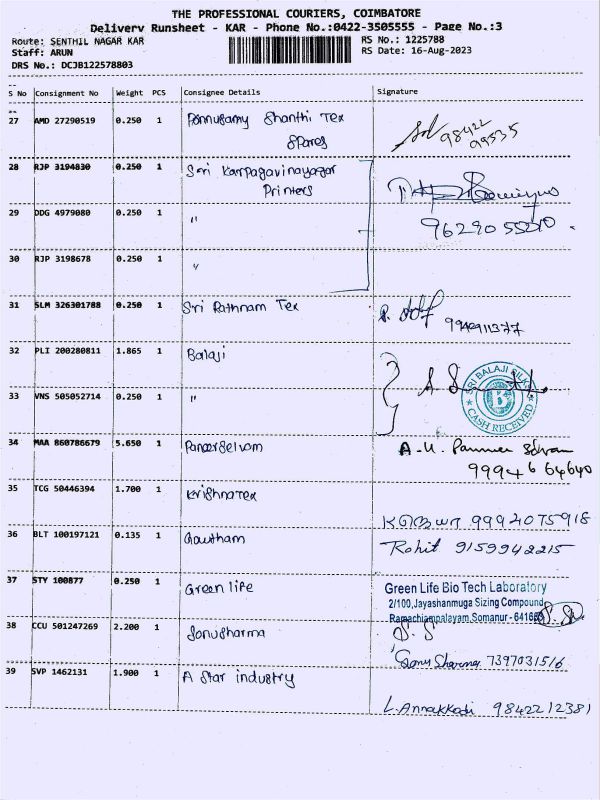 THE PROFESSIONAL COURIERS, COIMBATORE
Delivery Runsheet - KAR - Phone No.:0422-3505555 - Page No.:3
Route: SENTHIL NAGAR KAR
Staff: ARUN
DRS No.: DCJB122578803
RS No.: 1225788
RS Date: 16-Aug-2023
S No Consignment No Weight PCS Consignee Details Signature
27 AMD 27290519 0.250 1 Ponnusamy Shanthi Tex
Spares
98422
99535
28 RJP 3194830 0.250 1 Sri Karpagavinayagar
Printers
29 DDG 4979080 0.250 1 "
9629055210
30 RJP 3198678 0.250 1 "
31 SLM 326301788 0.250 1 Sri Rathnam Tex
32 PLI 200280811 1.865 1 Balaji
33 VNS 505052714 0.250 1 "
SRI BALAJI SILKS
B
CASH RECEIVED
34 MAA 860786679 5.650 1 Panneerselvam A.U. Panneer Selvam
99946 64640
35 TCG 50446394 1.700 1 Krishna Tex
9994075918
36 BLT 100197121 0.135 1 Gowtham Rohit 9159942215
37 STY 100877 0.250 1 Green life
Green Life Bio Tech Laboratory
2/100, Jayashanmuga Sizing Compound,
Ramachiampalayam, Somanur - 641668
38 CCU 501247269 2.200 1 Sonusharma S. S
Sonu Sharma 7397031516
39 SVP 1462131 1.900 1 A Star industry
L. Annakkodi 9842212381